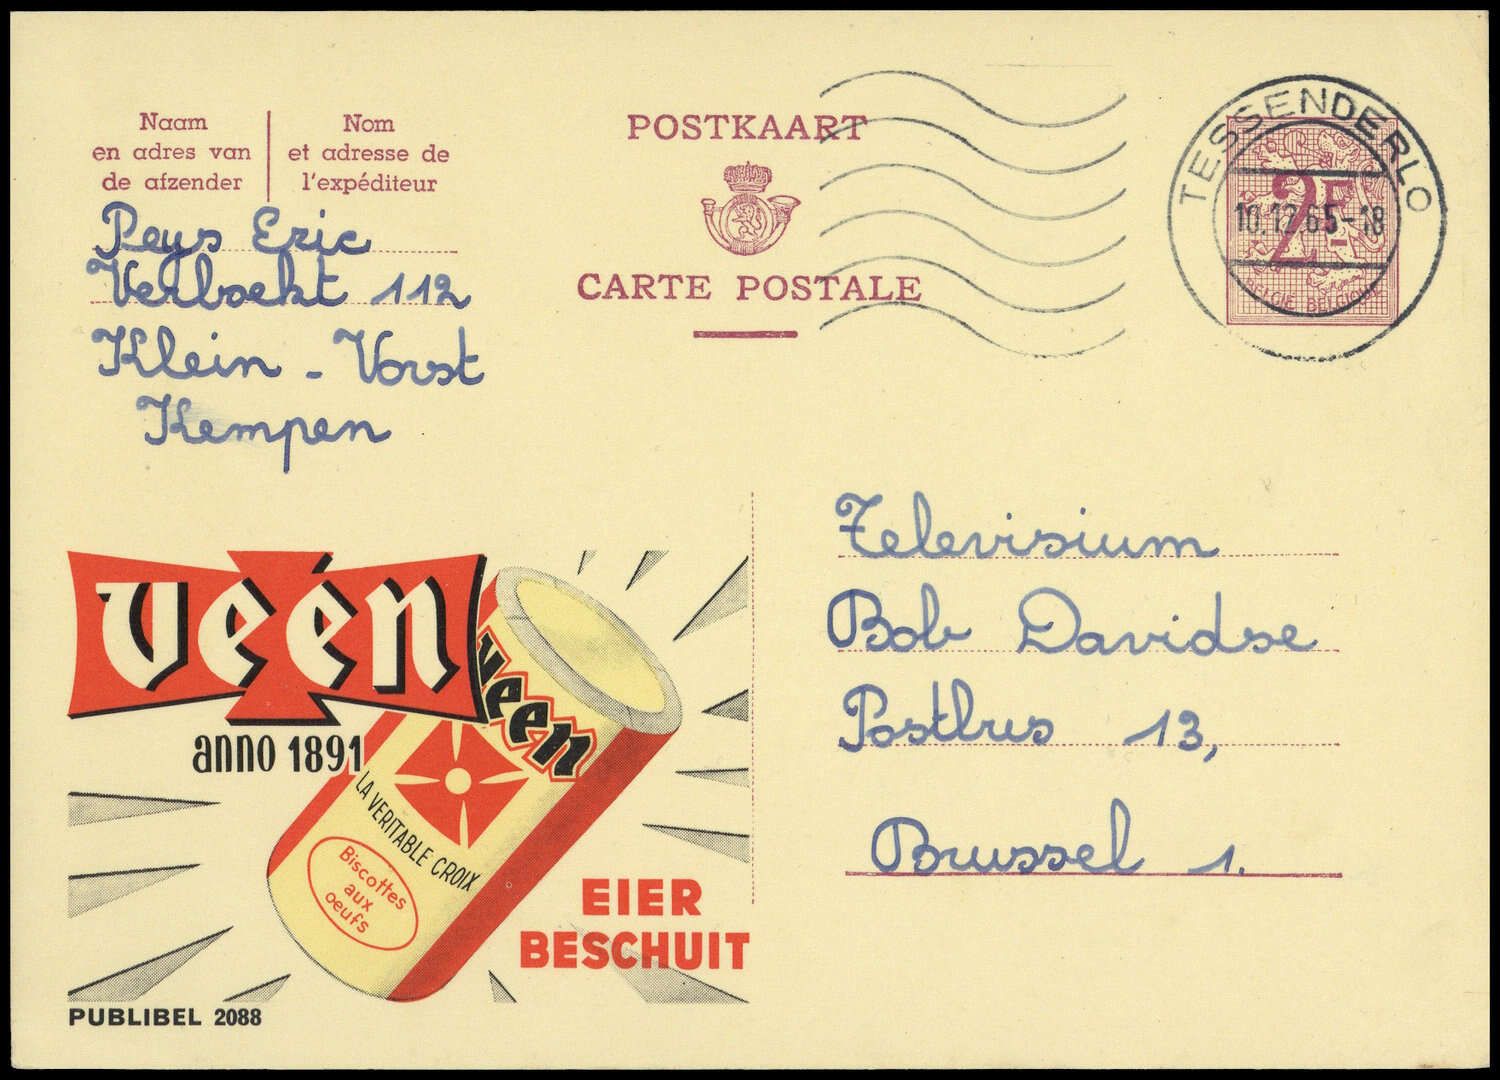 Naam
en adres van
de afzender
Nom
et adresse de
l'expéditeur
POSTKAART
CARTE POSTALE
TESSENDERLO
10.12.65-18
2F
BELGIE BELGIQUE
Reys Eric
Verboekt 112
Klein - Vorst
Kempen
Televisium
Bob Davidse
Postbus 13,
Brussel 1.
veen
anno 1891
veen
LA VERITABLE CROIX
Biscottes
aux
oeufs
EIER
BESCHUIT
PUBLIBEL 2088